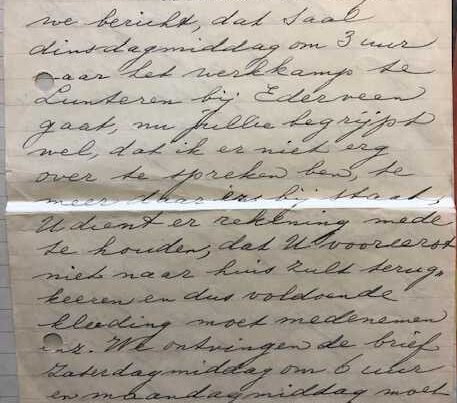 we bericht, dat Saal
dinsdagmiddag om 3 uur
naar het werkkamp te
Lunteren bij Ederveen
gaat, nu jullie begrijpt
wel, dat ik er niet erg
over te spreken ben, te
meer daar er bij staat,
U dient er rekening mede
te houden, dat U vooreerst
niet naar huis zult terug„
keeren en dus voldoende
kleeding moet medenemen
enz. We ontvingen de brief
Zaterdagmiddag om 6 uur
en maandagmiddag moet